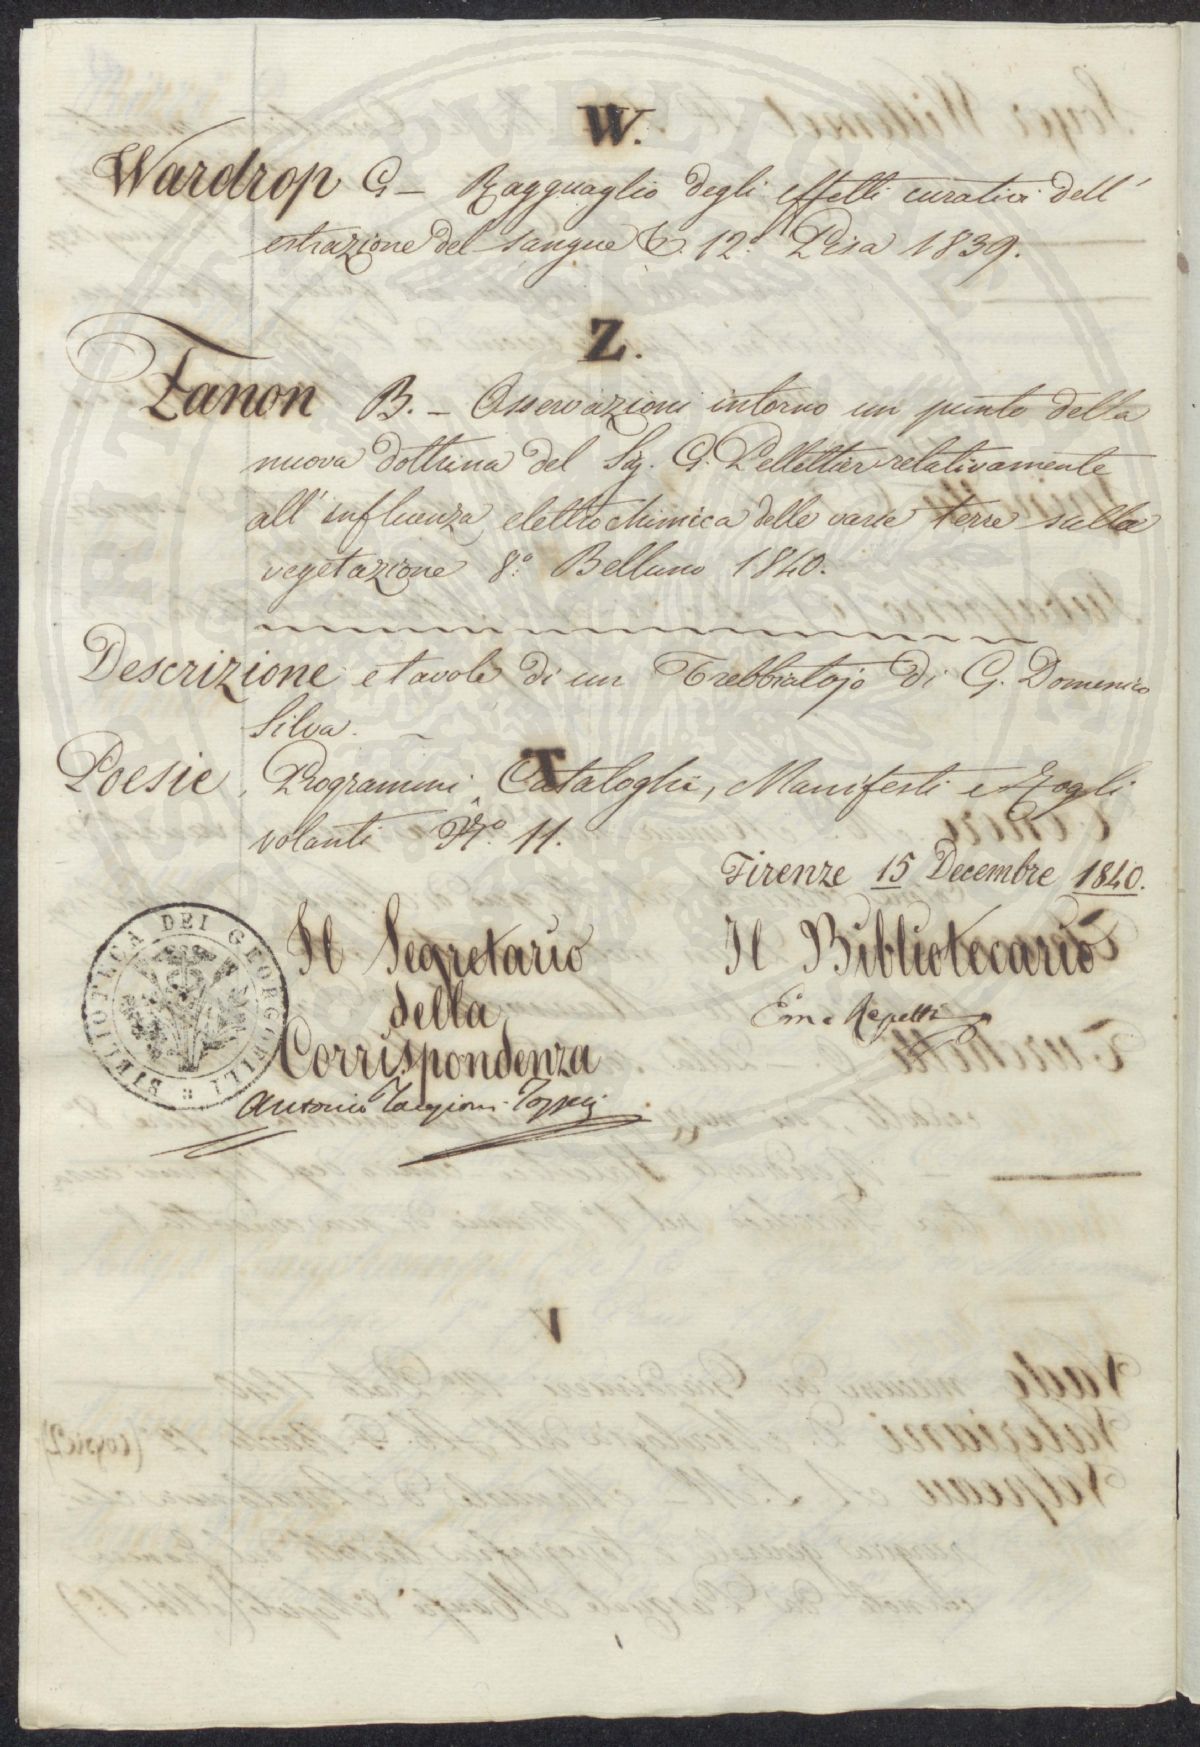 W.
Wardrop G – Ragguaglio degli effetti curativi dell'
estrazione del sangue &. 12.° Pisa 1839.
Z.
Zanon B. – Osservazioni intorno un punto della
nuova dottrina del Sig. G. Pelletier relativamente
all'influenza elettrochimica delle varie terre sulla
vegetazione 8.° Belluno 1840.
Descrizione e tavole di un Trebbiatojo di G. Domenico
Silva. –
Poesie, Programmi, Cataloghi, Manifesti e Fogli
volanti N.° 11.
Firenze 15 Decembre 1840.
Il Segretario
della
Corrispondenza
Antonio Targioni-Tozzetti
Il Bibliotecario
Em.e Repetti
BIBLIOTECA DEI GEORGOFILI